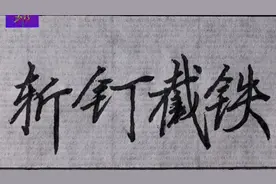 斩钉截铁